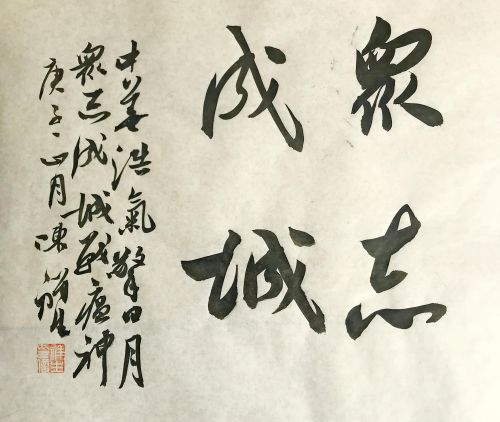 眾志
成城
中華浩氣擎日月
眾志成城戰瘟神
庚子正月陳